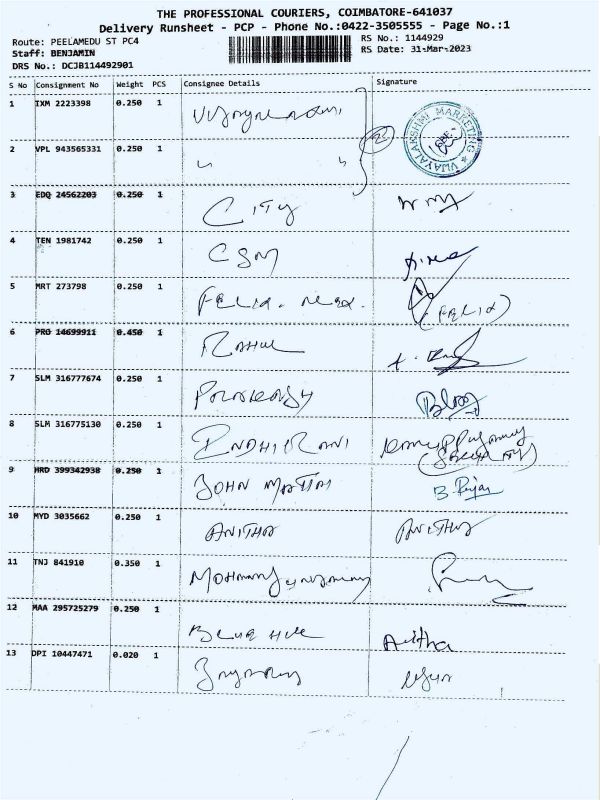 THE PROFESSIONAL COURIERS, COIMBATORE-641037
Delivery Runsheet - PCP - Phone No.:0422-3505555 - Page No.:1
Route: PEELAMEDU ST PC4
RS No.: 1144929
Staff: BENJAMIN
RS Date: 31-Mar-2023
DRS No.: DCJB114492901
S No Consignment No Weight PCS Consignee Details Signature
1 IXM 2223398 0.250 1
VIJAYALAKSHMI MARKETING
2 VPL 943565331 0.250 1 " "
3 EDQ 24562203 0.250 1 CITY
4 TEN 1981742 0.250 1 CSM
5 MRT 273798 0.250 1 FELIX. (FELIX)
6 PRO 14699911 0.450 1 RAHUL
7 SLM 316777674 0.250 1
8 SLM 316775130 0.250 1 INDHIRANI
9 HRD 399342938 0.250 1 JOHN
10 MYD 3035662 0.250 1 ANITHA ANITHA
11 TNJ 841910 0.350 1
12 MAA 295725279 0.250 1 BLUE Anitha
13 DPI 10447471 0.020 1